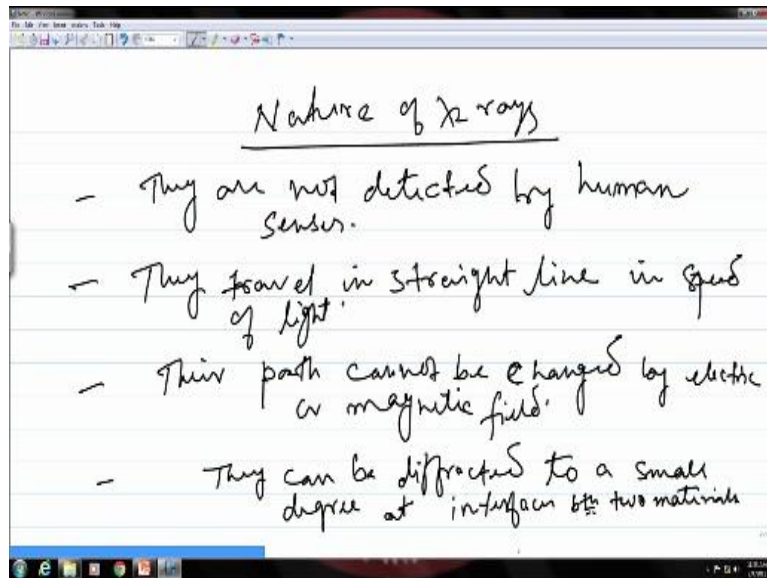 Nature of X rays
- They are not detected by human
senses.
- They travel in straight line in speed
of light.
- Their path cannot be changed by electric
or magnetic field.
- They can be diffracted to a small
degree at interfaces btn two materials